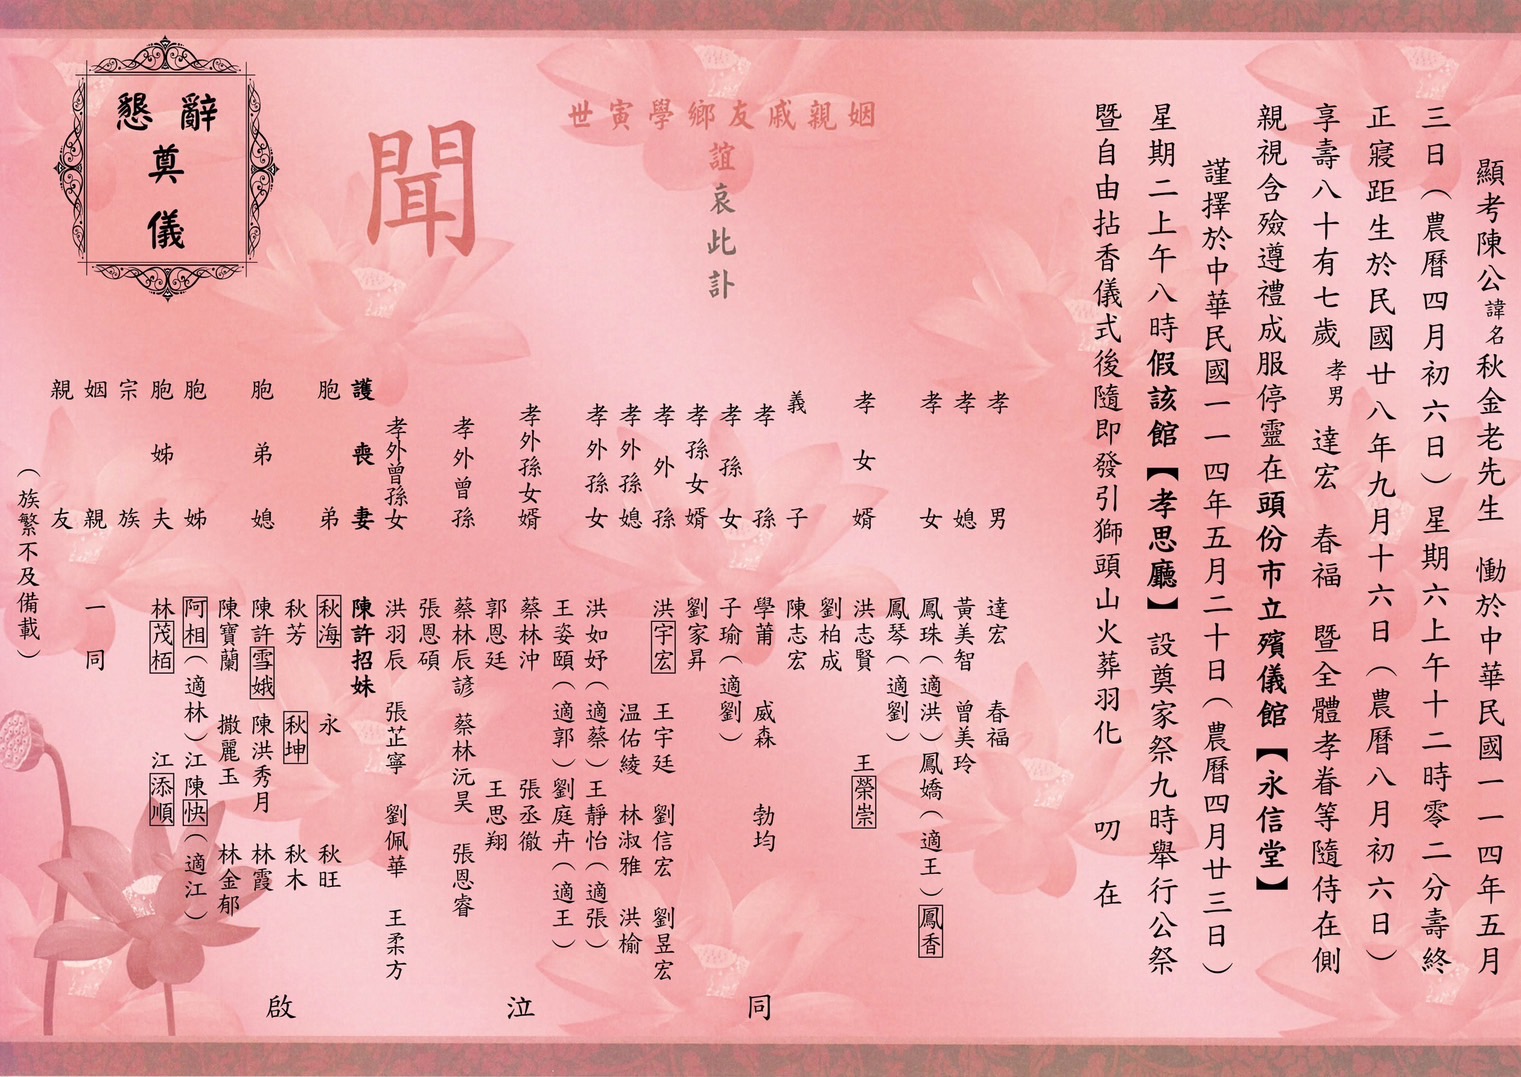 顯考陳公諱名秋金老先生　慟於中華民國一一四年五月
三日（農曆四月初六日）星期六上午十二時零二分壽終
正寢距生於民國廿八年九月十六日（農曆八月初六日）
享壽八十有七歲孝男達宏　春福　暨全體孝眷等隨侍在側
親視含殮遵禮成服停靈在頭份市立殯儀館【永信堂】
謹擇於中華民國一一四年五月二十日（農曆四月廿三日）
星期二上午八時假該館【孝思廳】設奠家祭九時舉行公祭
暨自由拈香儀式後隨即發引獅頭山火葬羽化　叨　在
世寅學鄉友戚親姻
誼哀此訃
聞
懇辭
奠
儀
孝男　達宏　春福
孝媳　黃美智　曾美玲
孝女　鳳珠（適洪）鳳嬌（適王）鳳香
鳳琴（適劉）
孝女婿　洪志賢　王榮崇
劉柏成
義子　陳志宏
孝孫　學莆　威森　勃均
孝孫女　子瑜（適劉）
孝孫女婿　劉家昇
孝外孫　洪宇宏　王宇廷　劉信宏　劉昱宏
孝外孫媳　温佑綾　林淑雅　洪榆
孝外孫女　洪如妤（適蔡）王靜怡（適張）
王姿頤（適郭）劉庭卉（適王）
孝外孫女婿　蔡林沖　張丞徹
郭恩廷　王思翔
孝外曾孫　蔡林辰諺　蔡林沅昊　張恩睿
張恩碩
孝外曾孫女　洪羽辰　張芷寧　劉佩華　王柔方
護喪妻　陳許招妹
胞弟　秋海　永　秋旺
秋芳　秋坤　秋木
胞弟媳　陳許雪娥　陳洪秀月　林霞
陳寶蘭　撒麗玉　林金郁
胞姊　阿相（適林）江陳快（適江）
胞姊夫　林茂栢　江添順
宗族
姻親　一同
親友
（族繁不及備載）
同　泣　啟